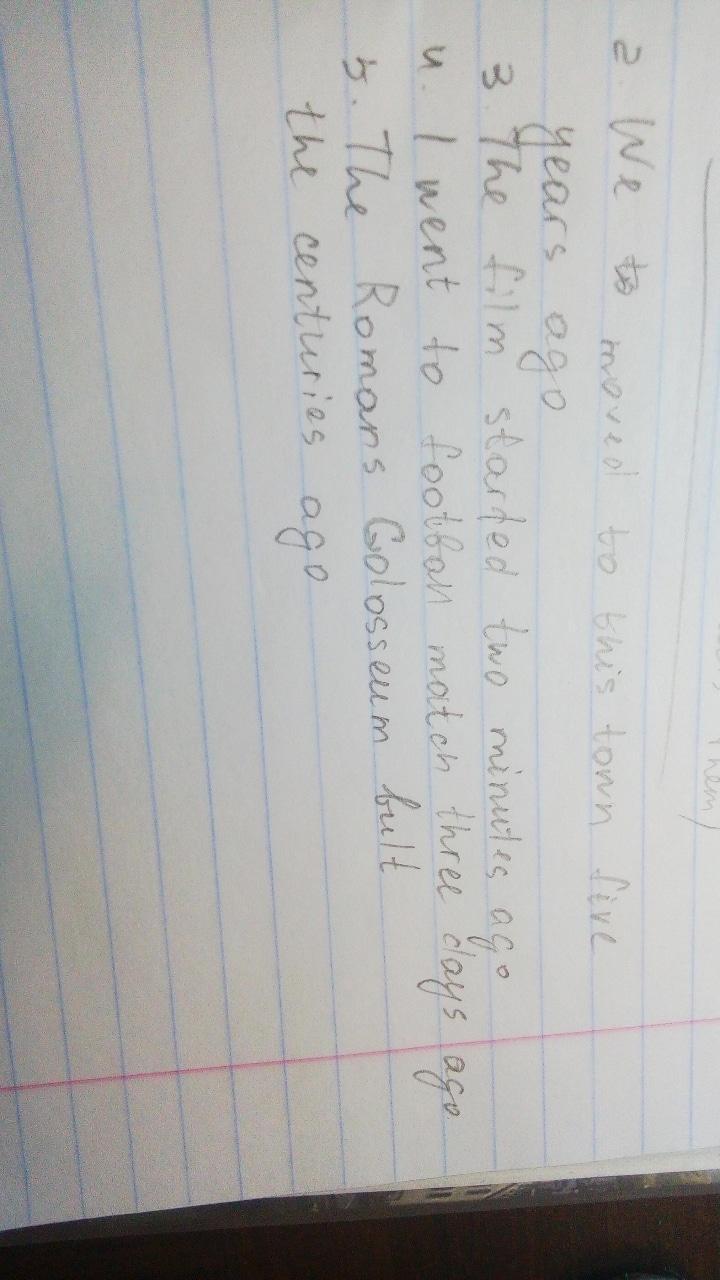 them)
2. We moved to this town five
years ago
3. The film started two minutes ago
4. I went to football match three days ago
5. The Romans Colosseum bult
the centuries ago